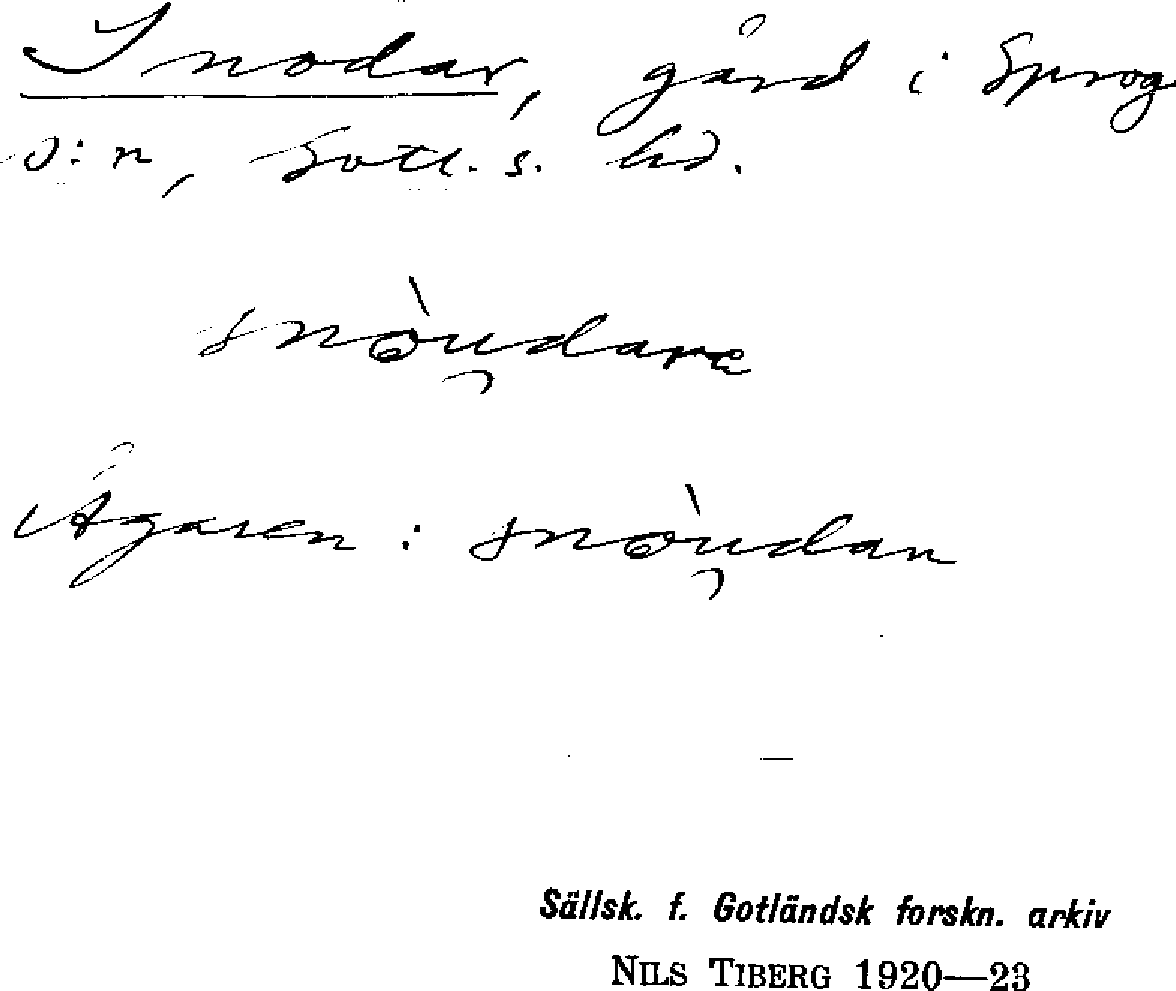 Snodar, gård i Sproge
s:n, Gotl. s. hd.
snòu̯dare
Ägaren : snòu̯dan
Sällsk. f. Gotländsk forskn. arkiv
NILS TIBERG 1920—23